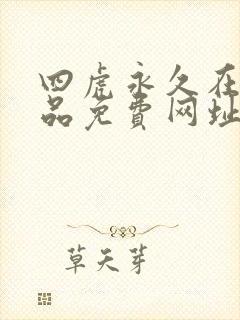 四虎永久在
品免費网址
草天芽